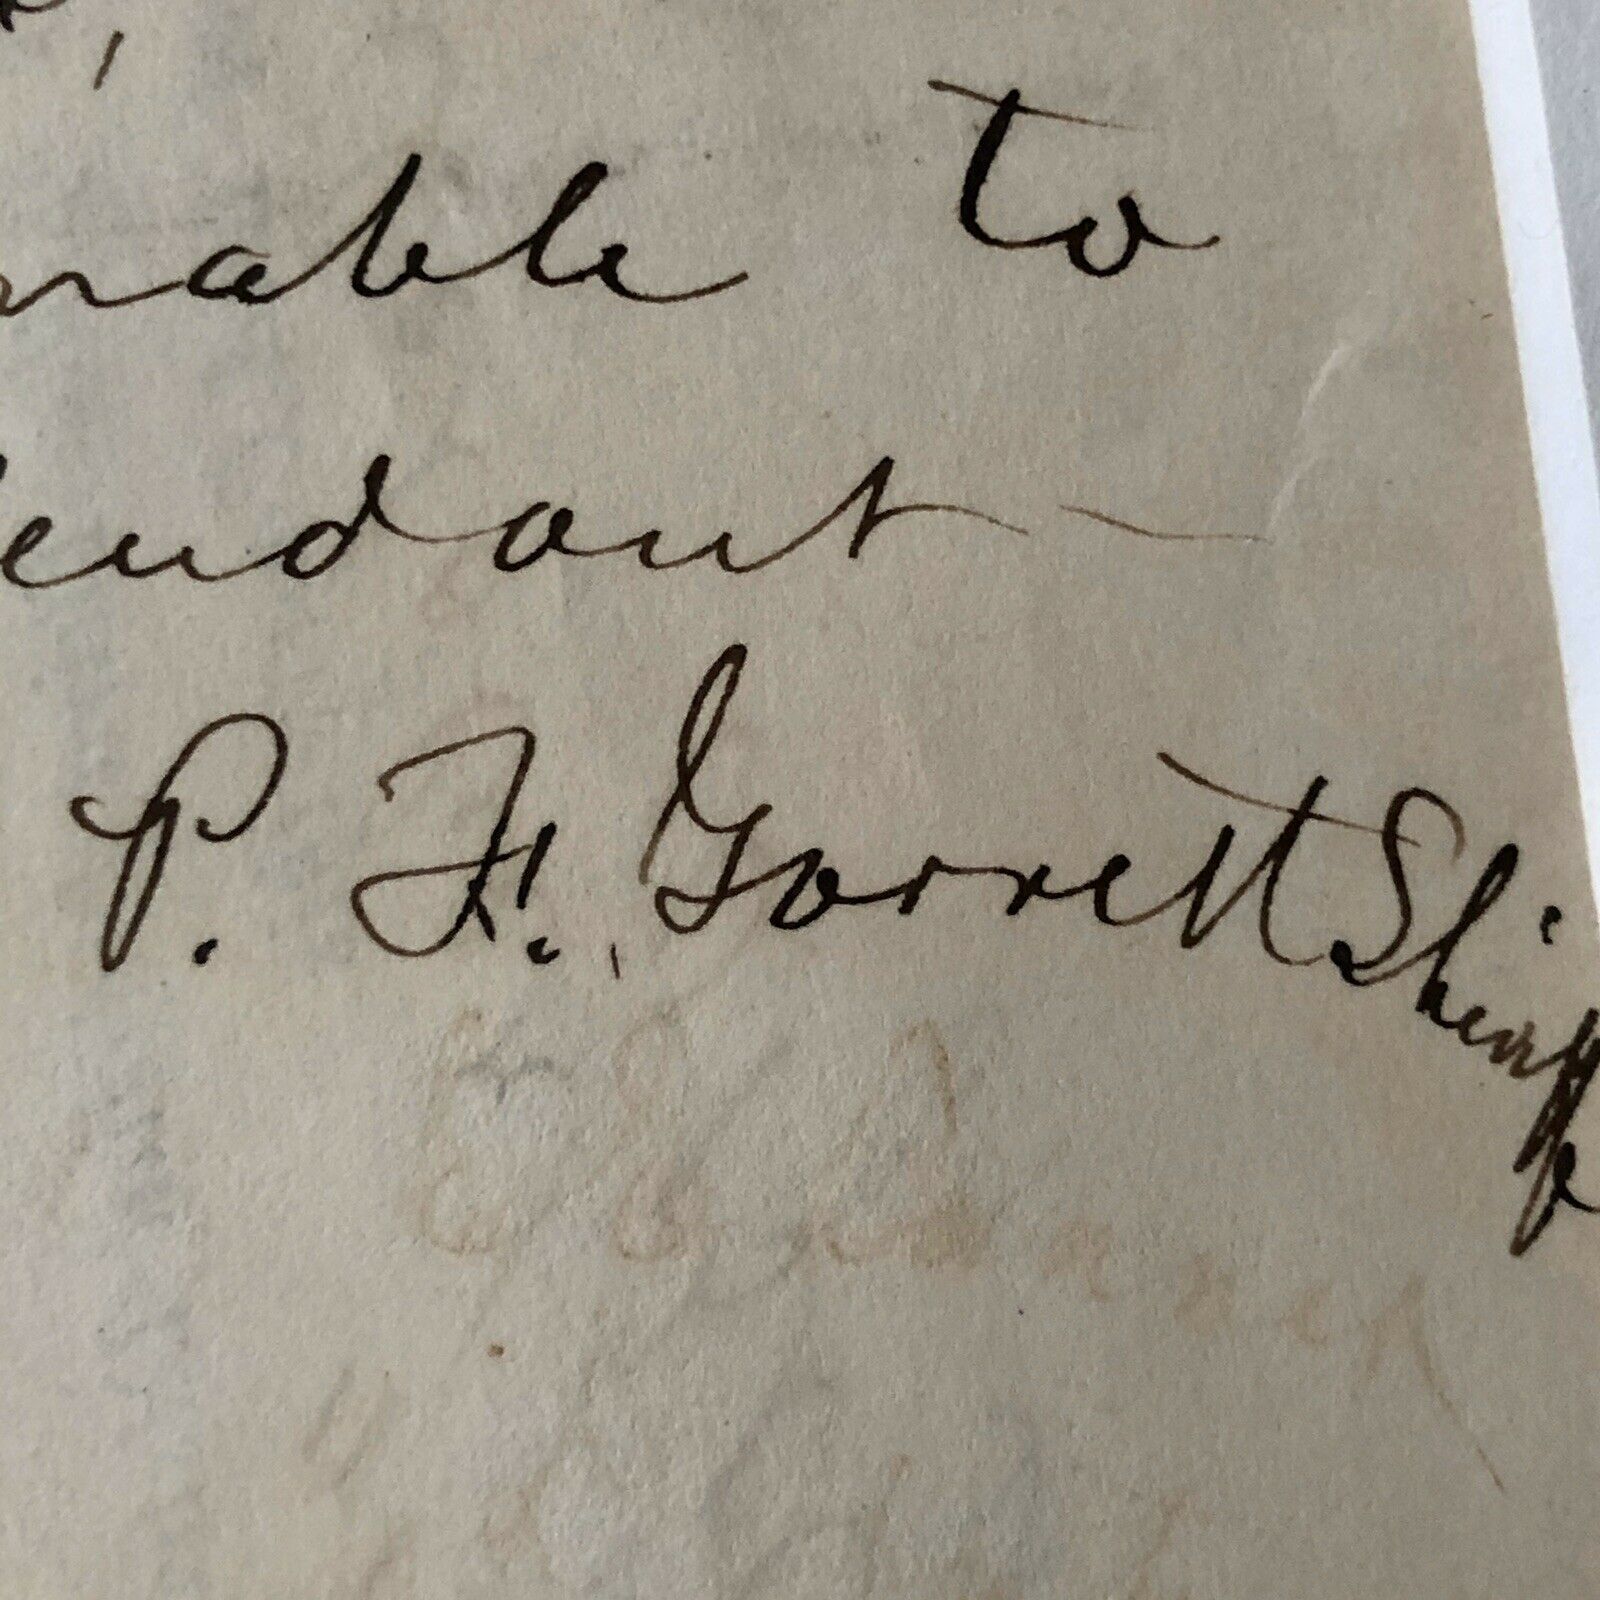 nable to
endant —
P. F. Garrett Sheriff